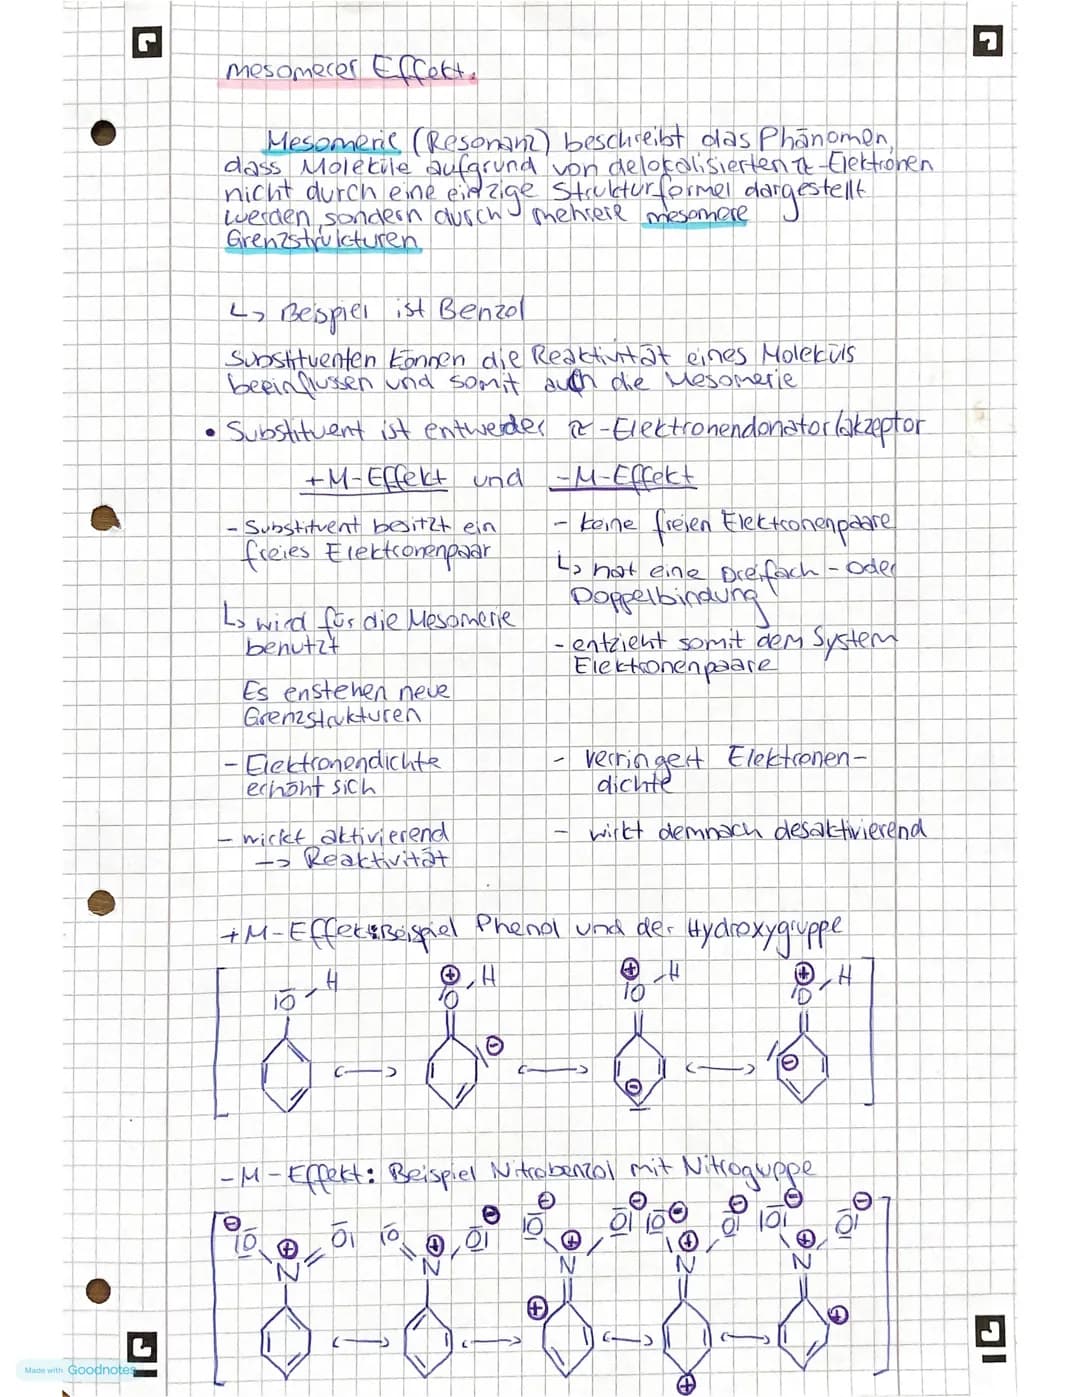 mesomerer Effekt.
Mesomerie (Resonanz) beschreibt das Phänomen,
dass Moleküle aufgrund von delokalisierten π-Elektronen
nicht durch eine einzige Strukturformel dargestellt
werden, sondern durch mehrere mesomere
Grenzstrukturen
↳ Beispiel ist Benzol
Substituenten können die Reaktivität eines Moleküls
beeinflussen und somit auch die Mesomerie
• Substituent ist entweder π-Elektronendonator/akzeptor
+M-Effekt und -M-Effekt
- Substituent besitzt ein
freies Elektronenpaar
↳ wird für die Mesomerie
benutzt
Es enstehen neue
Grenzstrukturen
- Elektronendichte
erhöht sich
- wirkt aktivierend
-> Reaktivität
- keine freien Elektronenpaare
↳ hat eine Dreifach- oder
Doppelbindung
- entzieht somit dem System
Elektronenpaare
- verringert Elektronen-
dichte
- wirkt demnach desaktivierend
+M-Effekt: Beispiel Phenol und der Hydroxygruppe
O H ⊕ O H ⊕ O H ⊕ O H
⊖ ⊖ ⊖
-M-Effekt: Beispiel Nitrobenzol mit Nitroguppe
⊖ O O O ⊖ O ⊖ O ⊖ O ⊖ O ⊖ O ⊖ O ⊖ O
⊕ N ⊕ N ⊕ N ⊕ N ⊕ N
⊕ ⊕ ⊕
Made with Goodnotes